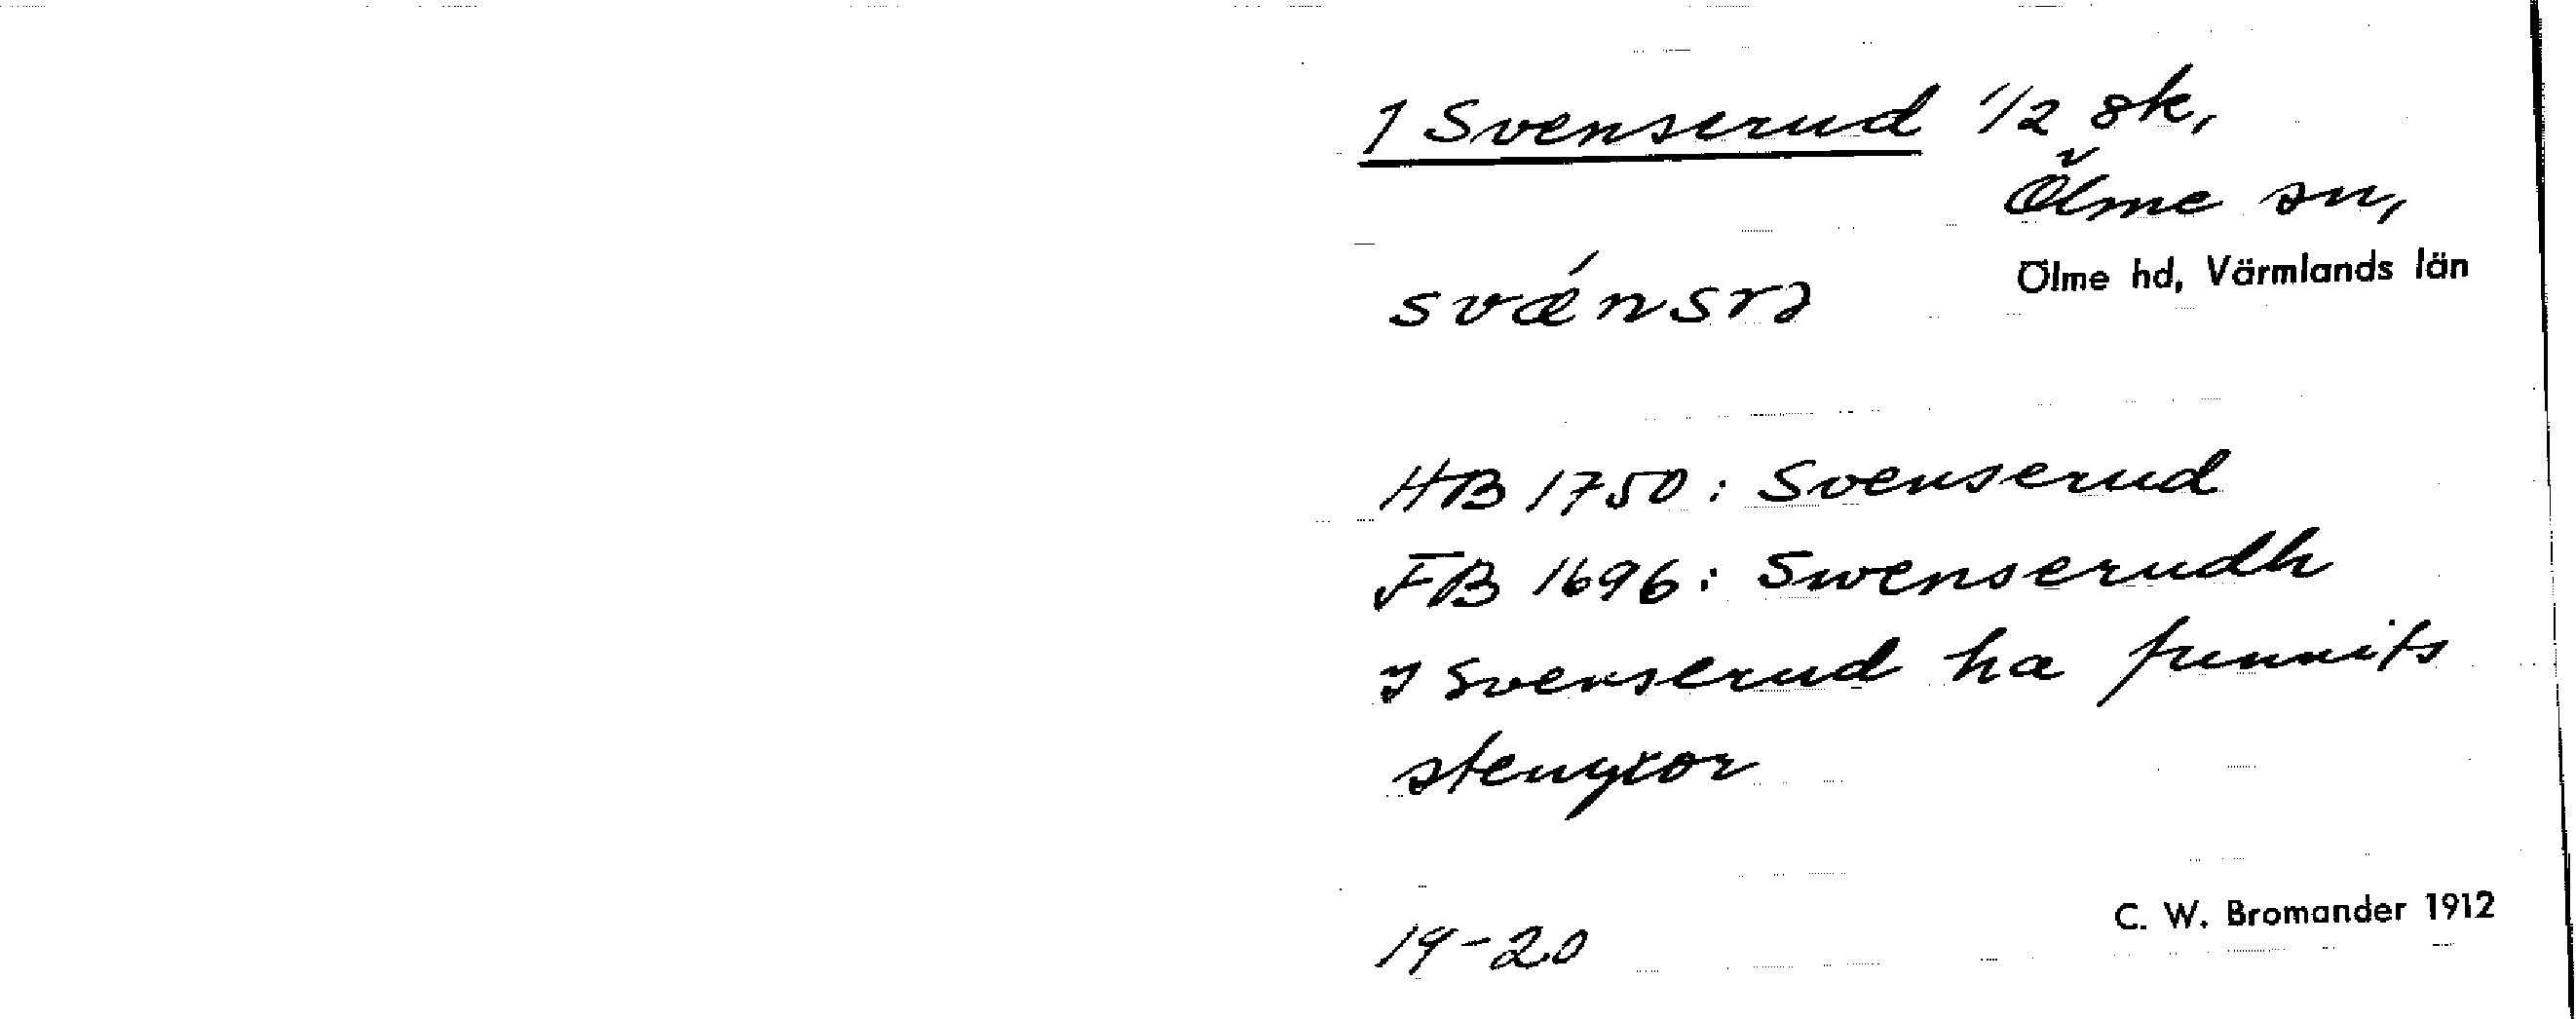 1 Svenserud 1/2 sk,
Ölme sn,
Ölme hd, Värmlands län
svǽnsrə
HB 1750: Svenserud
FB 1696: Swenserudh
I Svenserud ha funnits
stenyxor
19-20
C. W. Bromander 1912